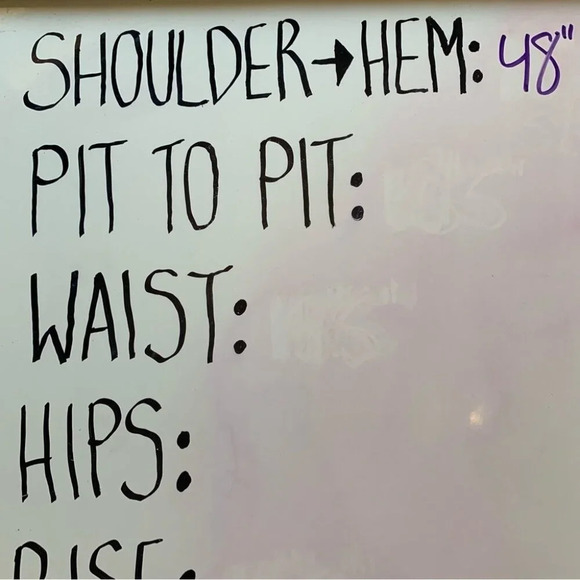 SHOULDER→HEM: 48"
PIT TO PIT:
WAIST:
HIPS:
RISE: